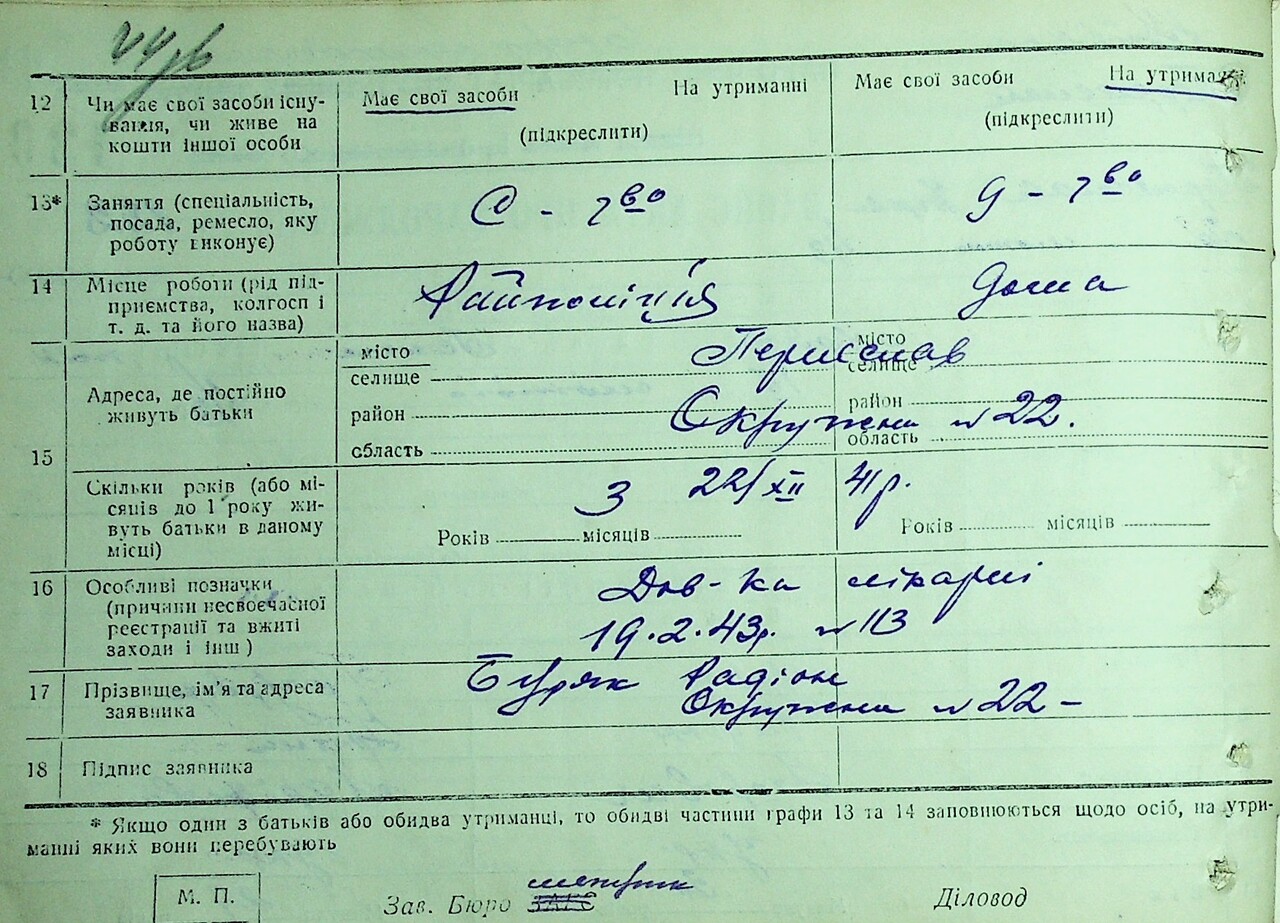 12 Чи має свої засоби існу-
вання, чи живе на
кошти іншої особи
Має свої засоби На утриманні
(підкреслити)
Має свої засоби На утриманні
(підкреслити)
13* Заняття (спеціальність,
посада, ремесло, яку
роботу виконує)
С - тво
д - тво
14 Місце роботи (рід під-
приємства, колгосп і
т. д. та його назва)
Райполіція
Дома
15 Адреса, де постійно
живуть батьки
місто
селище
район
область
Переяслав
Окружна № 22.
місто
селище
район
область
Скільки років (або мі-
сяців до 1 року жи-
вуть батьки в даному
місці)
3 22/XII 41р.
Років місяців
Років місяців
16 Особливі позначки
(причини несвоєчасної
реєстрації та вжиті
заходи і інш)
Дов-ка лікарні
19.2.43р. № 113
17 Прізвище, ім'я та адреса
заявника
Буряк Радіон
Окружна № 22 -
18 Підпис заявника
* Якщо один з батьків або обидва утриманці, то обидві частини графи 13 та 14 заповнюються щодо осіб, на утри-
манні яких вони перебувають
М. П.
Зав. Бюро ЗАГС
Діловод